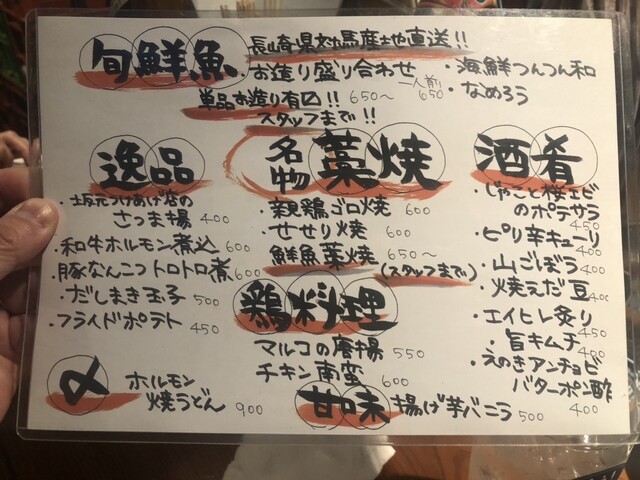 旬鮮魚
長崎県対馬産地直送!!
・お造り盛り合わせ
一人前 650
単品お造り有〼!! 650～
スタッフまで!!
・海鮮つんつん和
・なめろう
逸品
・坂元つけあげ店の
さつま揚 400
・和牛ホルモン煮込 600
・豚なんこつトロトロ煮 600
・だしまき玉子 500
・フライドポテト 450
〆
ホルモン
焼うどん 900
名物 藁焼
・親鶏ゴロ焼 600
・せせり焼 600
・鮮魚藁焼 650～
(スタッフまで)
鶏料理
マルコの唐揚 550
チキン南蛮 600
甘味
揚げ芋バニラ 500
酒肴
・じゃこと桜エビ
のポテサラ 450
・ピリ辛キューリ 400
・山ごぼう 400
・焼えだ豆 400
・エイヒレ炙り 450
・旨キムチ 400
・えのきアンチョビ
バターポン酢 400